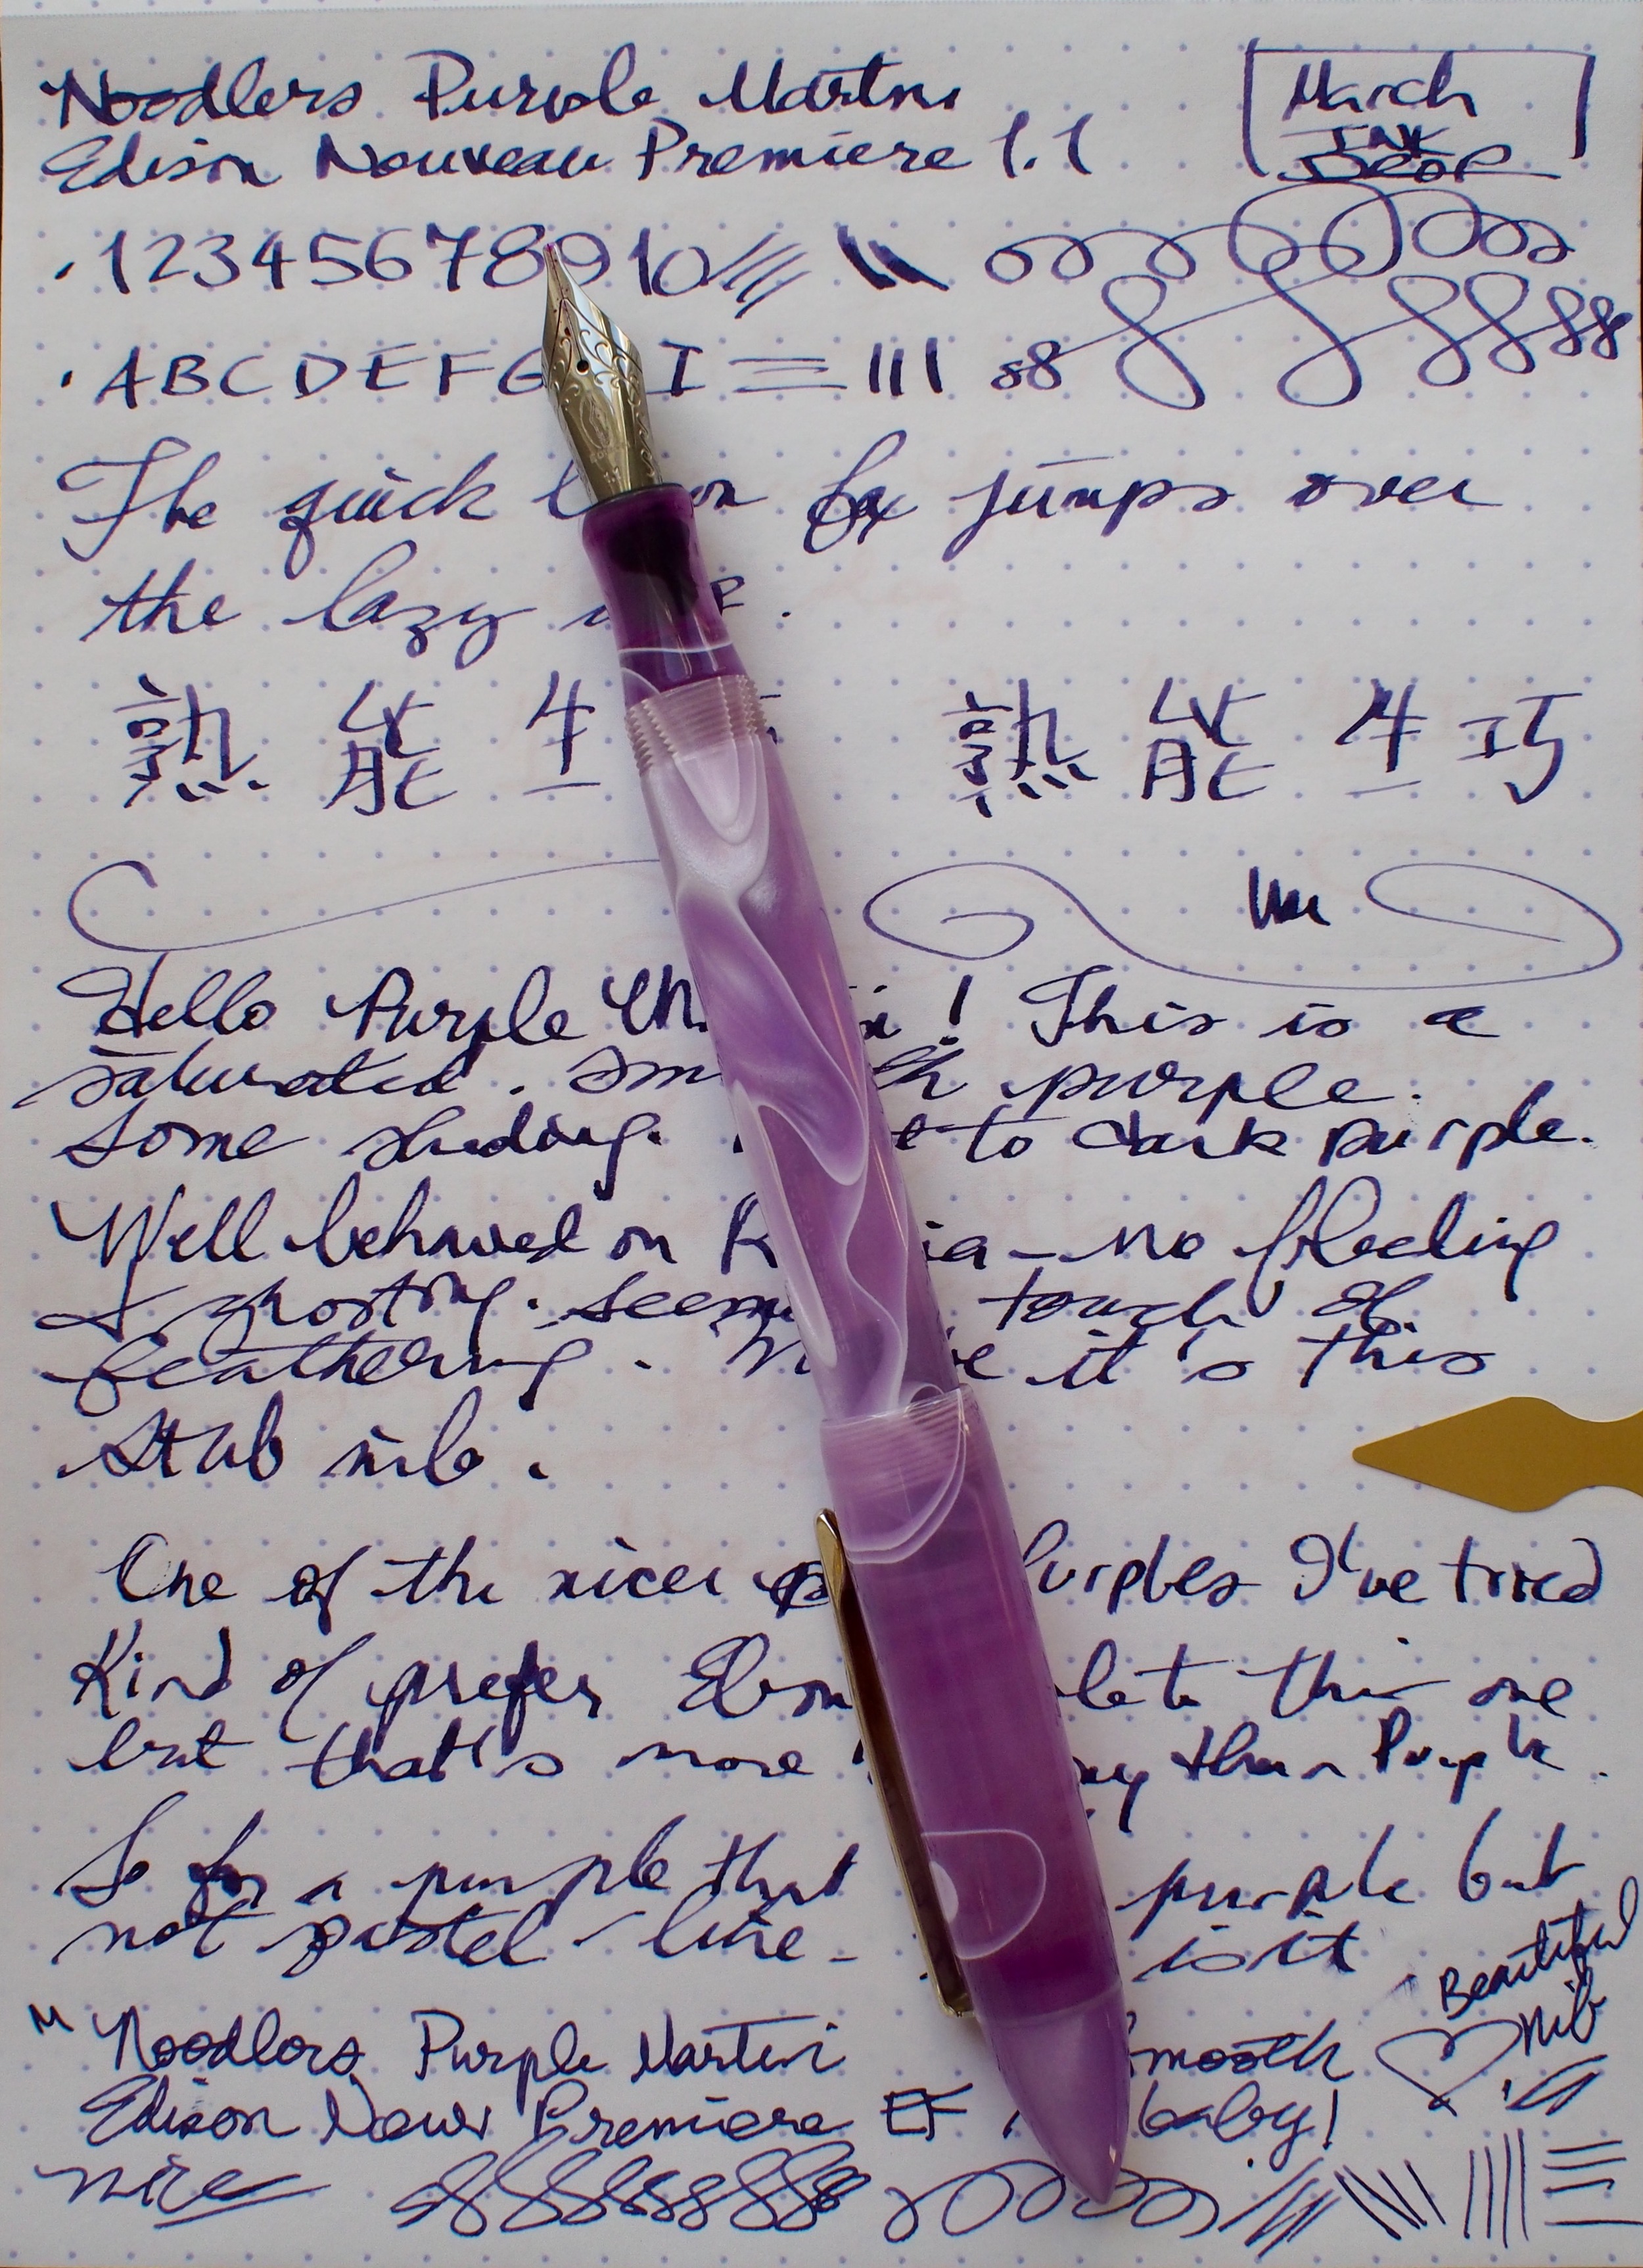 Noodlers Purple Martini
Edison Nouveau Premiere 1.1
March
INK
DROP
1 2 3 4 5 6 7 8 9 10
A B C D E F G I
The quick fox jumps over
the lazy
熟 能 生
熟 能 生 巧
Hello Purple ! This is a
saturated. purple.
Some shading. to dark purple.
Well behaved on – no bleeding
& ghosting. touch of
feathering. it's this
stub nib.
One of the nicer Purples I've tried
Kind of prefer this one
but that's more than Purple.
So for a purple that purple but
not pastel-like - is it
Beautiful
nib
"Noodlers Purple Martini Smooth
Edison Nouv Premiere EF baby!
nice